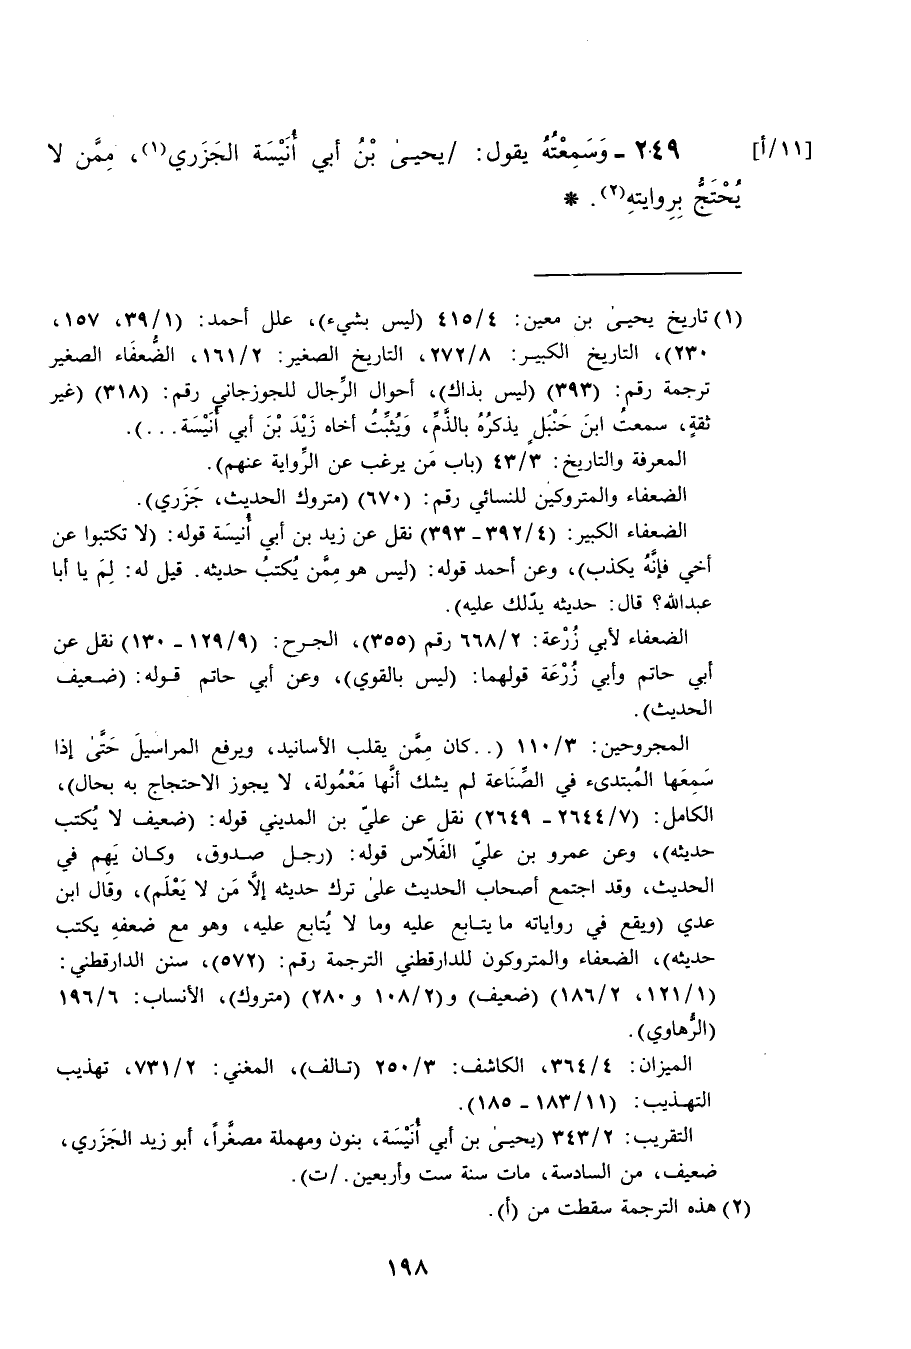 [١١/أ] ٢٤٩ ـ وَسَمِعْتُهُ يقول: /يحيىٰ بْنُ أبي أُنَيْسَة الجَزَري(١)، مِمَّن لا
يُحْتَجُّ بِروايتهِ(٢). *
(١) تاريخ يحيىٰ بن معين: ٤/٤١٥ (ليس بشيء)، علل أحمد: (١/٣٩، ١٥٧،
٢٣٠)، التاريخ الكبير: ٨/٢٧٢، التاريخ الصغير: ٢/١٦١، الضُّعفَاء الصغير
ترجمة رقم: (٣٩٣) (ليس بذاك)، أحوال الرِّجال للجوزجاني رقم: (٣١٨) (غير
ثقةٍ، سمعتُ ابنَ حَنْبَلٍ يذكرُهُ بالذَّمِّ، وَيُثبِّتُ أخاه زَيْدَ بْنَ أبي أُنَيْسَة...).
المعرفة والتاريخ: ٣/٤٣ (باب مَن يرغب عن الرِّواية عنهم).
الضعفاء والمتروكين للنسائي رقم: (٦٧٠) (متروك الحديث، جَزَري).
الضعفاء الكبير: (٤/٣٩٢ ـ ٣٩٣) نقل عن زيد بن أبي أُنيسَة قوله: (لا تكتبوا عن
أخي فإنَّهُ يكذب)، وعن أحمد قوله: (ليس هو مِمَّن يُكتبُ حديثه. قيل له: لِمَ يا أبا
عبدالله؟ قال: حديثه يدّلك عليه).
الضعفاء لأبي زُرْعة: ٢/٦٦٨ رقم (٣٥٥)، الجرح: (٩/١٢٩ ـ ١٣٠) نقل عن
أبي حاتم وأبي زُرْعَة قولهما: (ليس بالقوي)، وعن أبي حاتم قوله: (ضعيف
الحديث).
المجروحين: ٣/١١٠ (..كان مِمَّن يقلب الأسانيد، ويرفع المراسيلَ حَتَّىٰ إذا
سَمِعَها المُبتدىء في الصِّنَاعة لم يشك أنَّها مَعْمُولة، لا يجوز الاحتجاج به بحال)،
الكامل: (٧/٢٦٤٤ ـ ٢٦٤٩) نقل عن عليّ بن المديني قوله: (ضعيف لا يُكتب
حديثه)، وعن عمرو بن عليّ الفَلّاس قوله: (رجل صدوق، وكان يَهِم في
الحديث، وقد اجتمع أصحاب الحديث علىٰ ترك حديثه إلَّا مَن لا يَعْلَم)، وقال ابن
عدي (ويقع في رواياته ما يتابع عليه وما لا يُتابع عليه، وهو مع ضعفهِ يكتب
حديثه)، الضعفاء والمتروكون للدارقطني الترجمة رقم: (٥٧٢)، سنن الدارقطني:
(١/١٢١، ٢/١٨٦) (ضعيف) و(٢/١٠٨ و٢٨٠) (متروك)، الأنساب: ٦/١٩٦
(الرُّهاوي).
الميزان: ٤/٣٦٤، الكاشف: ٣/٢٥٠ (تالف)، المغني: ٢/٧٣١، تهذيب
التهذيب: (١١/١٨٣ ـ ١٨٥).
التقريب: ٢/٣٤٣ (يحيىٰ بن أبي أُنَيْسَة، بنون ومهملة مصغَّراً، أبو زيد الجَزَري،
ضعيف، من السادسة، مات سنة ست وأربعين. /ت).
(٢) هذه الترجمة سقطت من (أ).
١٩٨